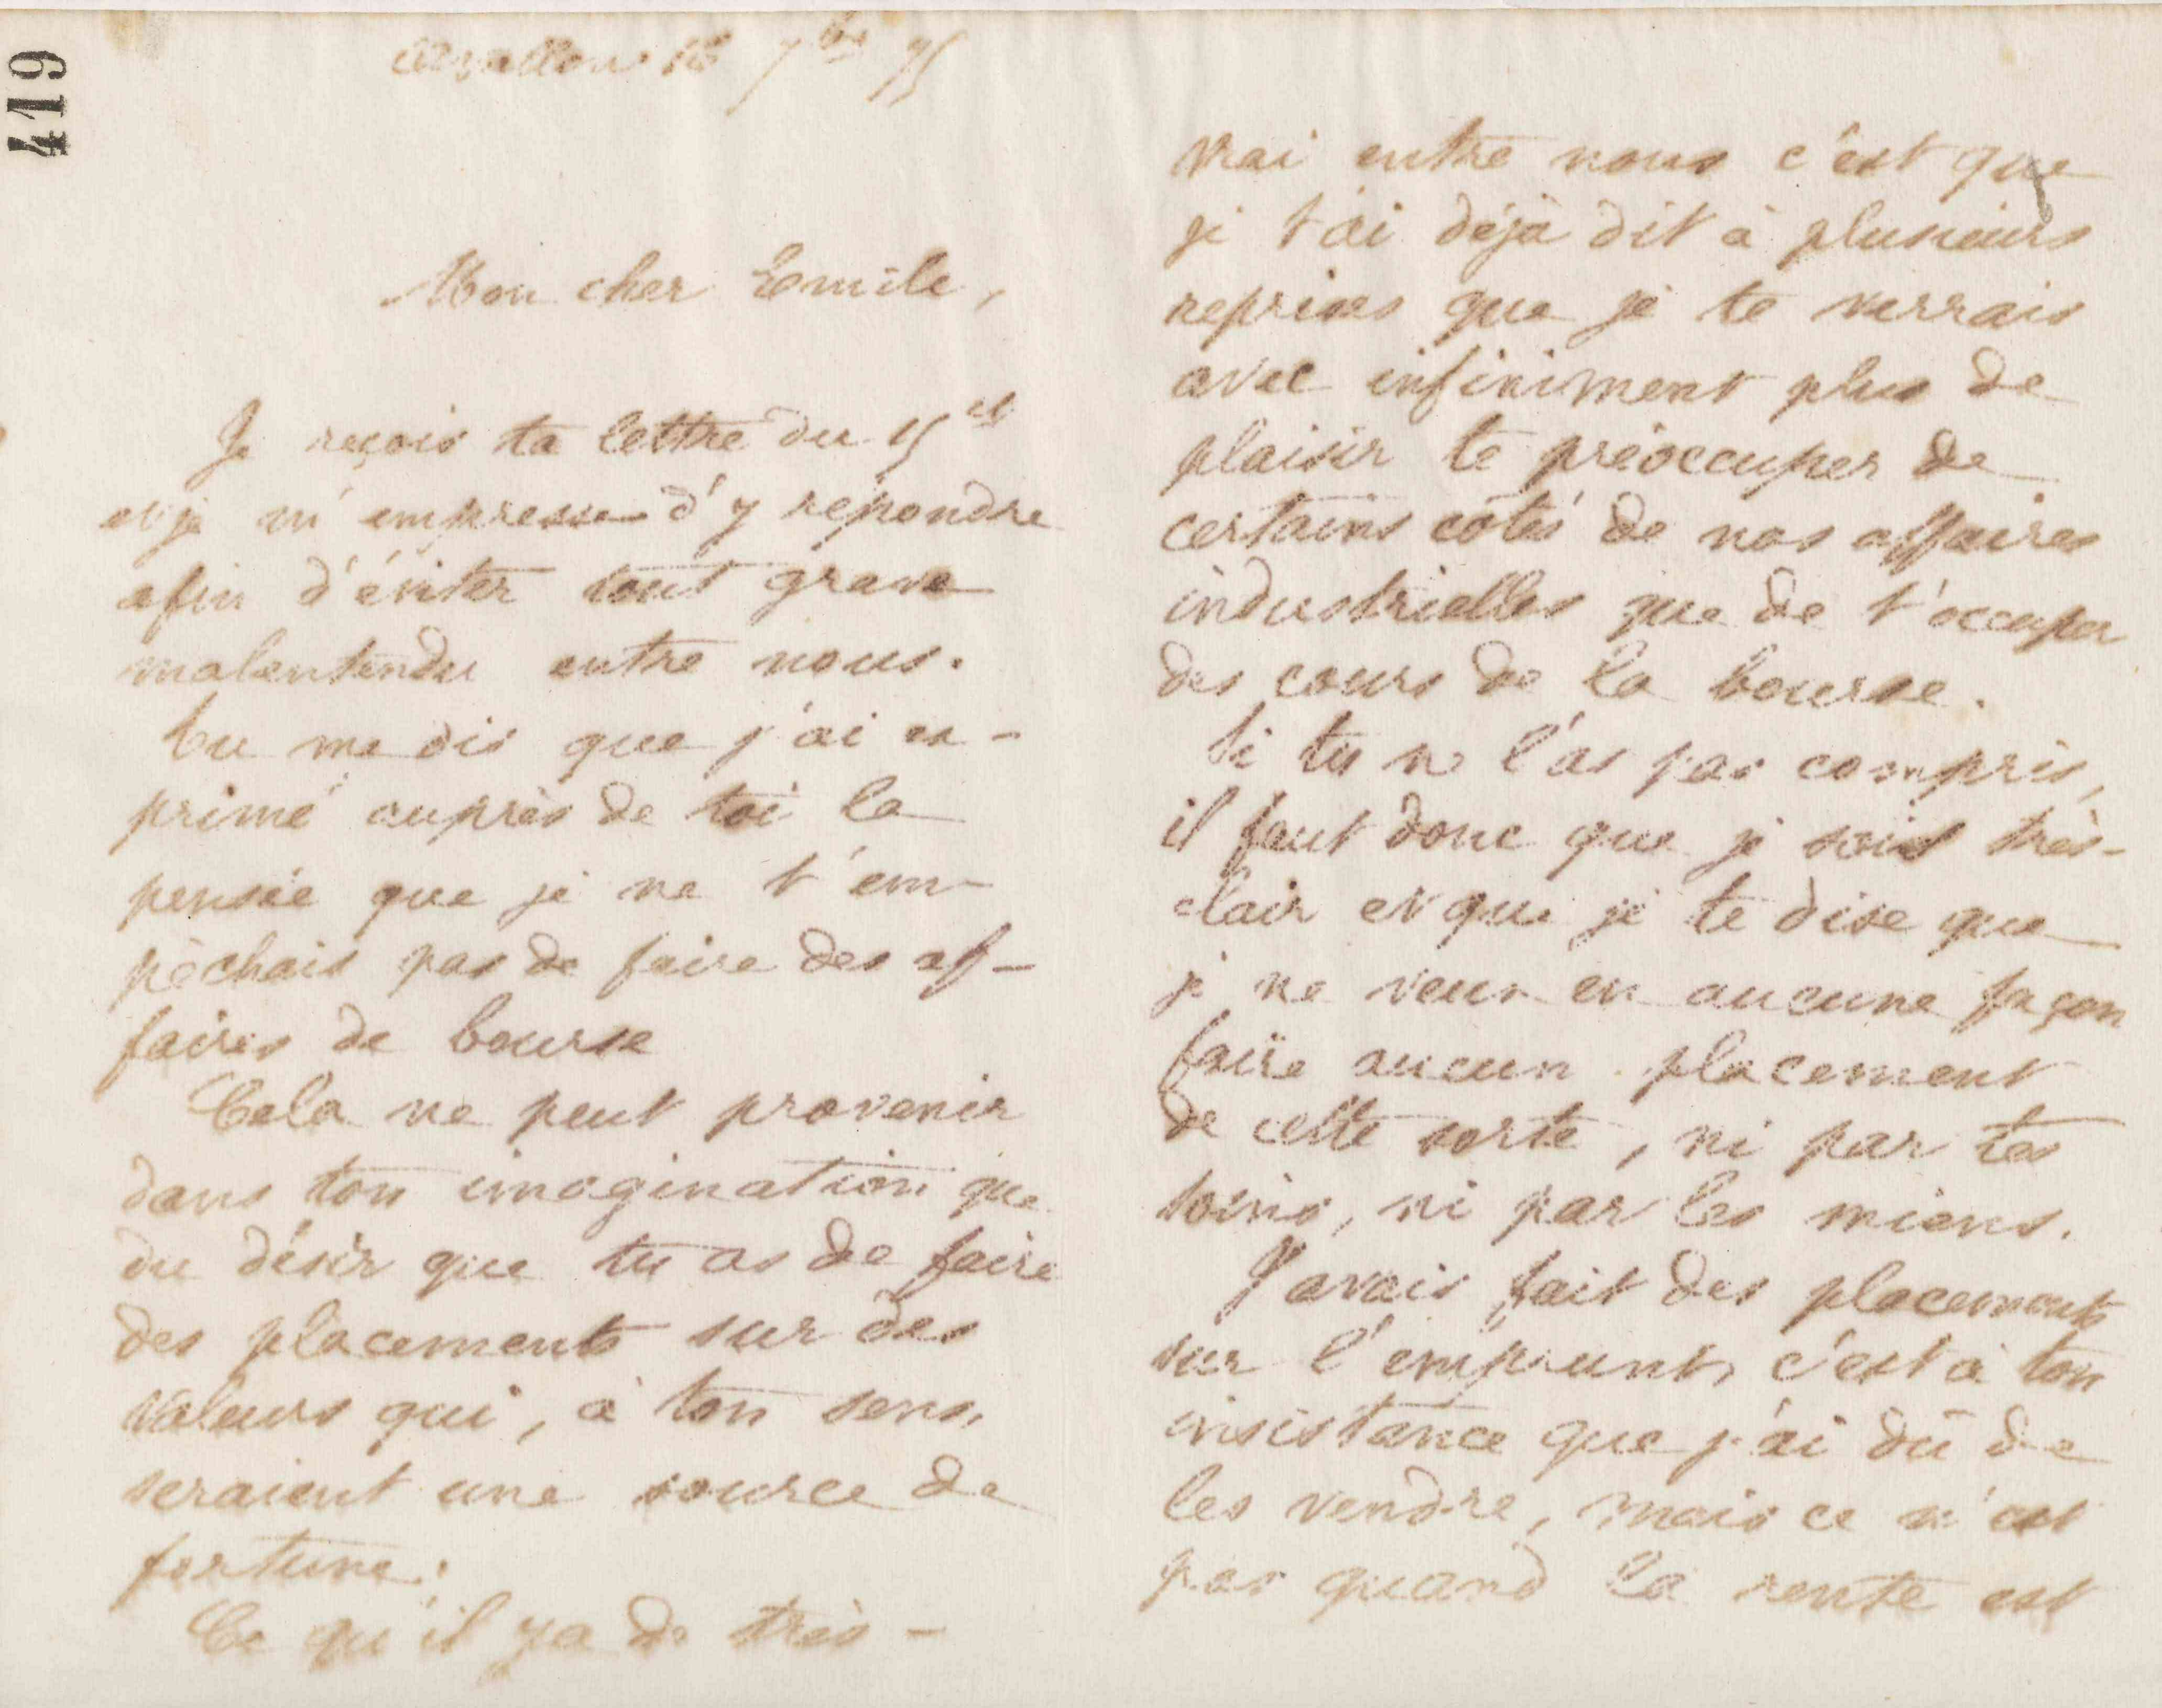 419
Avallon 16 7bre 75
Mon cher Emile,
Je reçois ta lettre du 15 ct
et je m'empresse d'y répondre
afin d'éviter tout grave
malentendu entre nous.
Tu me dis que j'ai ex-
primé auprès de toi la
pensée que je ne t'em-
pêchais pas de faire des af-
faires de bourse
Cela ne peut provenir
dans ton imagination que
du désir que tu as de faire
des placements sur des
valeurs qui, à ton sens,
seraient une source de
fortune.
Ce qu'il y a de très-
vrai entre nous c'est que
je t'ai déjà dit à plusieurs
reprises que je te verrais
avec infiniment plus de
plaisir te préoccuper de
certains côtés de nos affaires
industrielles que de t'occuper
des cours de la bourse.
Si tu ne l'as pas compris,
il faut donc que je sois très-
clair et que je te dise que
je ne veux en aucune façon
faire aucun placement
de cette sorte, ni par tes
soins, ni par les miens.
J'avais fait des placements
sur l'emprunt, c'est à ton
insistance que j'ai dû de
les vendre, mais ce n'est
pas quand la rente est